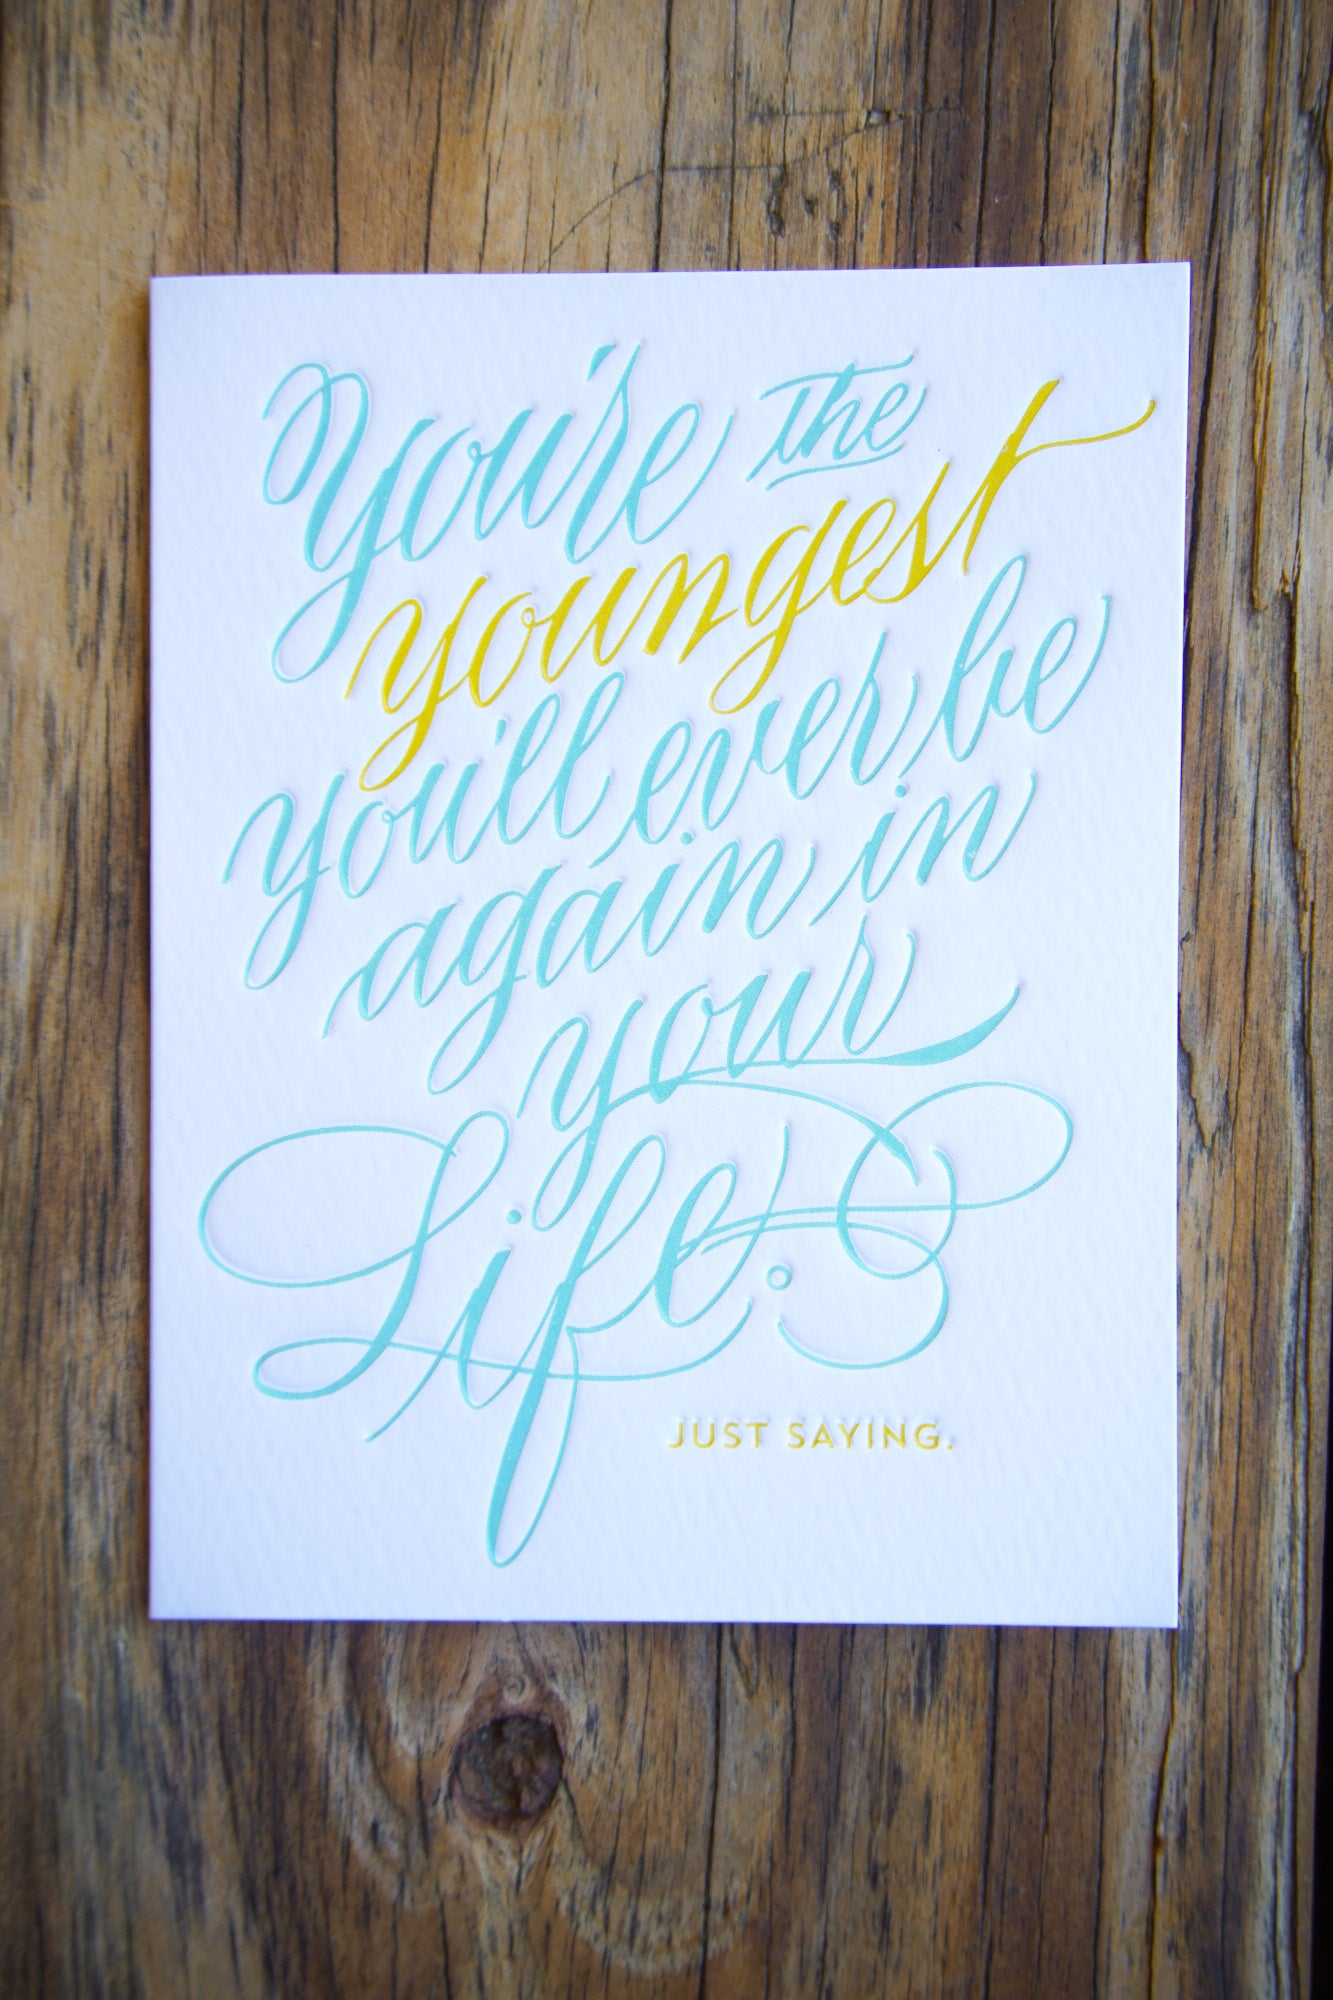 You're the
youngest
you'll ever be
again in
your
Life.
JUST SAYING.